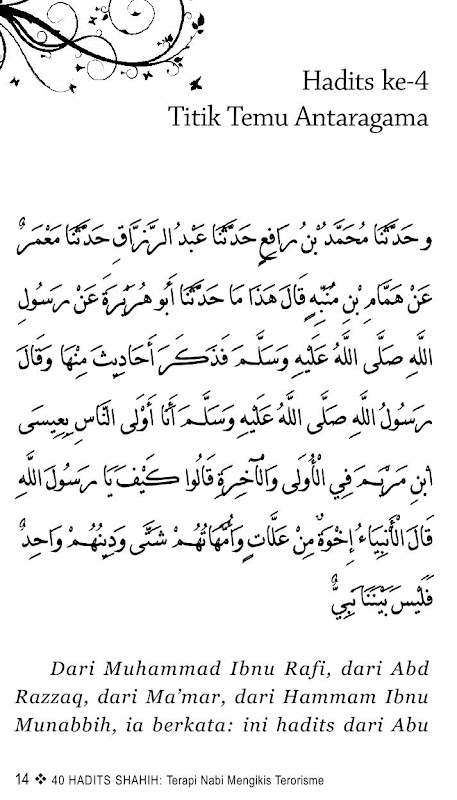 Hadits ke-4
Titik Temu Antaragama
و حَدَّثَنَا مُحَمَّدُ بْنُ رَافِعٍ حَدَّثَنَا عَبْدُ الرَّزَّاقِ حَدَّثَنَا مَعْمَرٌ
عَنْ هَمَّامِ بْنِ مُنَبِّهٍ قَالَ هَذَا مَا حَدَّثَنَا أَبُو هُرَيْرَةَ عَنْ رَسُولِ
اللَّهِ صَلَّى اللَّهُ عَلَيْهِ وَسَلَّمَ فَذَكَرَ أَحَادِيثَ مِنْهَا وَقَالَ
رَسُولُ اللَّهِ صَلَّى اللَّهُ عَلَيْهِ وَسَلَّمَ أَنَا أَوْلَى النَّاسِ بِعِيسَى
ابْنِ مَرْيَمَ فِي الْأُولَى وَالْآخِرَةِ قَالُوا كَيْفَ يَا رَسُولَ اللَّهِ
قَالَ الْأَنْبِيَاءُ إِخْوَةٌ مِنْ عَلَّاتٍ وَأُمَّهَاتُهُمْ شَتَّى وَدِينُهُمْ وَاحِدٌ
فَلَيْسَ بَيْنَنَا نَبِيٌّ
Dari Muhammad Ibnu Rafi, dari Abd
Razzaq, dari Ma’mar, dari Hammam Ibnu
Munabbih, ia berkata: ini hadits dari Abu
14 ❖ 40 HADITS SHAHIH: Terapi Nabi Mengikis Terorisme